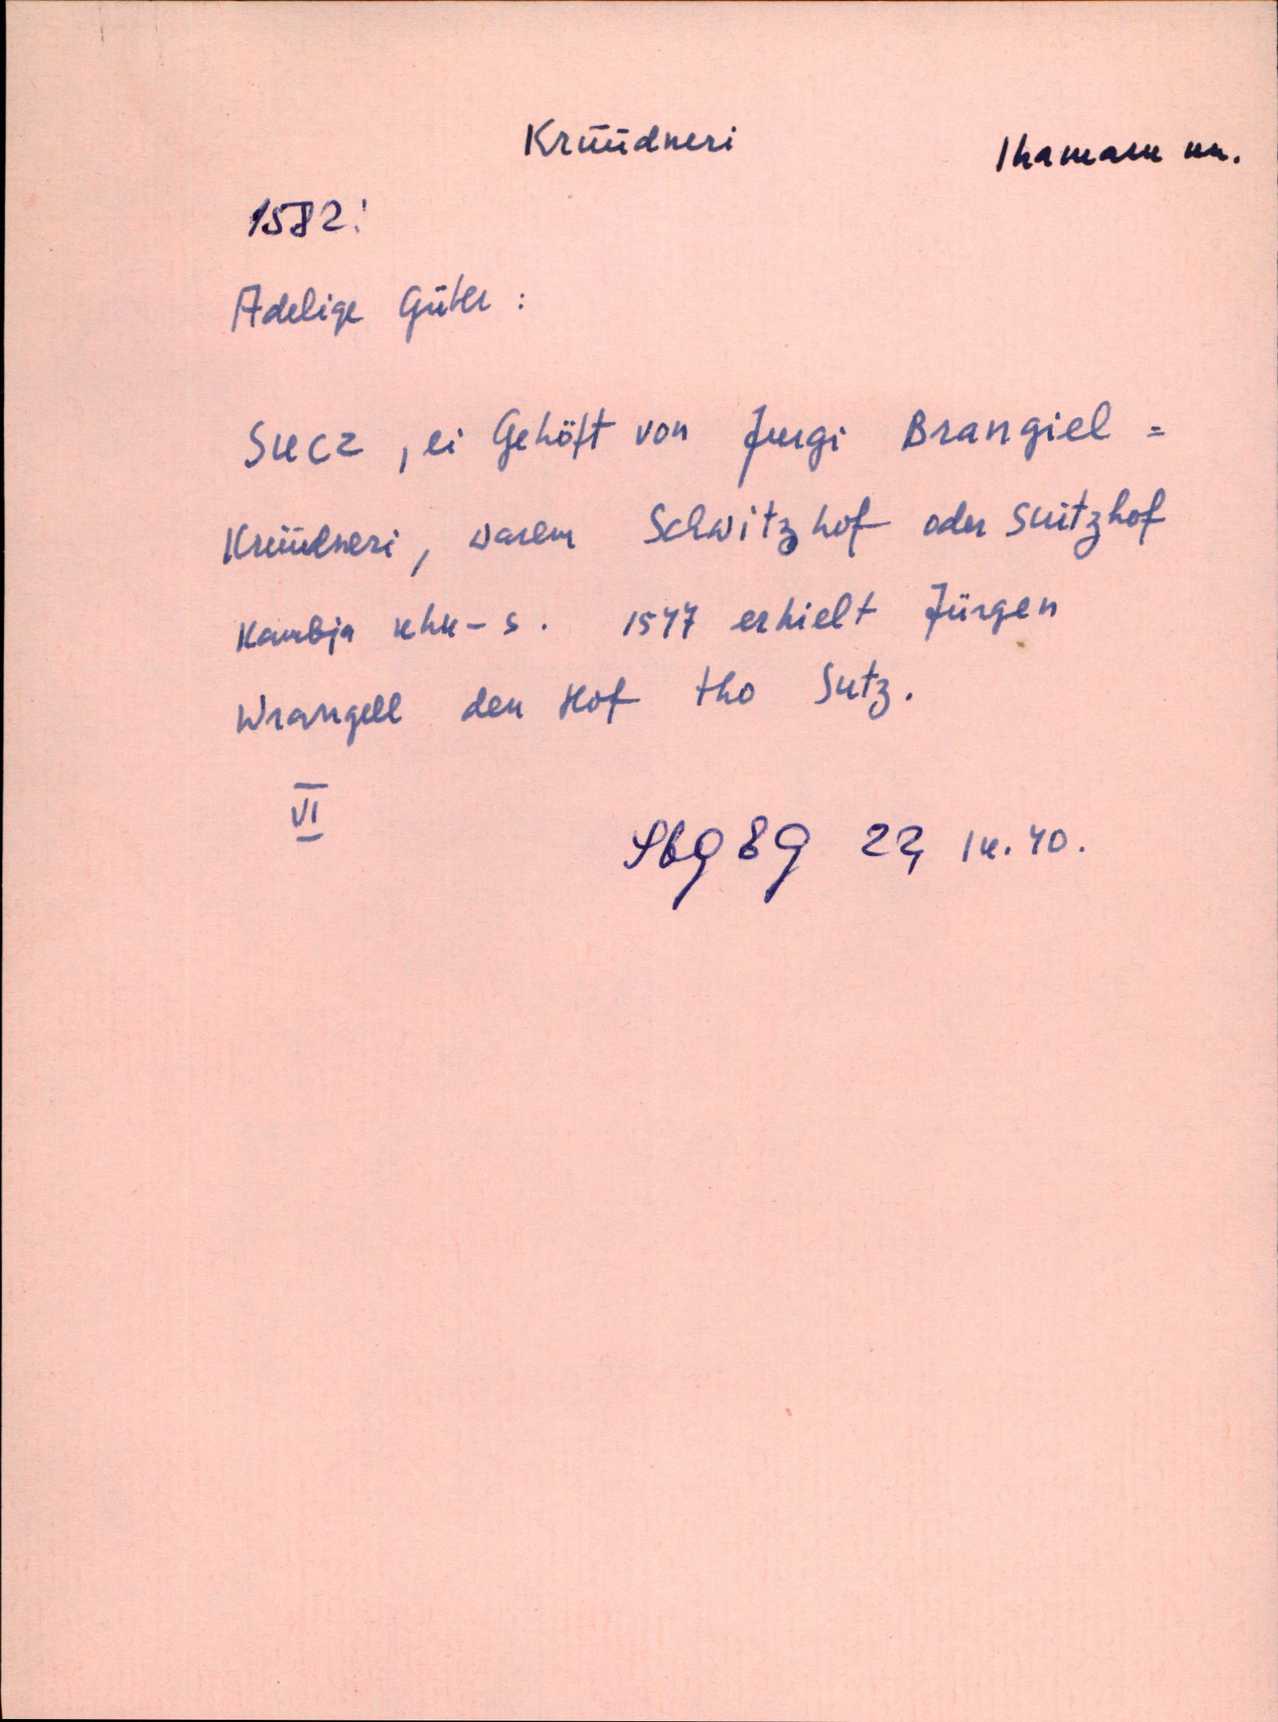 Krüüdneri
Ihamaru mn.
1582:
Adelige Güter:
Sucz, ei Gehöft von Jurgi Brangiel =
Krüüdneri, varem Schwitzhof oder Suitzhof
Kambja khk-s. 1577 erhielt Jürgen
Wrangell den Hof tho Sutz.
VI
SbGEG 22, lk. 40.